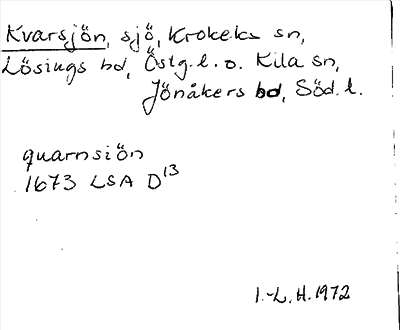 Kvarsjön, sjö, Krokeks sn,
Lösings bd, Östg.l. o. Kila sn,
Jönåkers bd, Söd.l.
quarnsiön
1673 LSA D13
I.-L. H. 1972